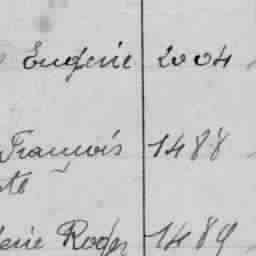 Eugénie 2004
François 1488
te
erie Roger 1489